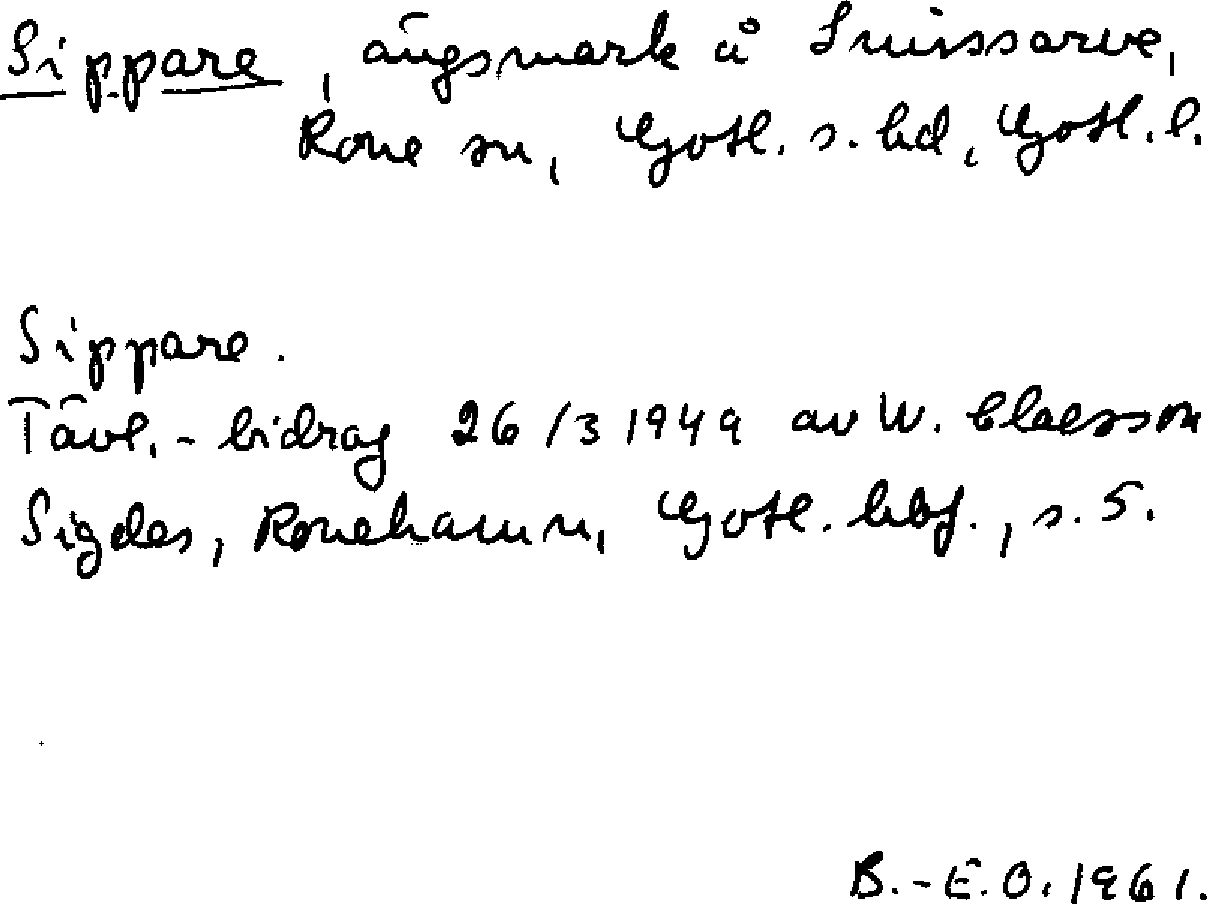 Sippare, ängsmark å Smissarve,
Rone sn, Gotl. s. hd, Gotl. l.
Sippare.
Tävl.-bidrag 26/3 1949 av W. Claesson
Sigdes, Ronehamn, Gotl. hbf., s. 5.
B.-E.O. 1961.